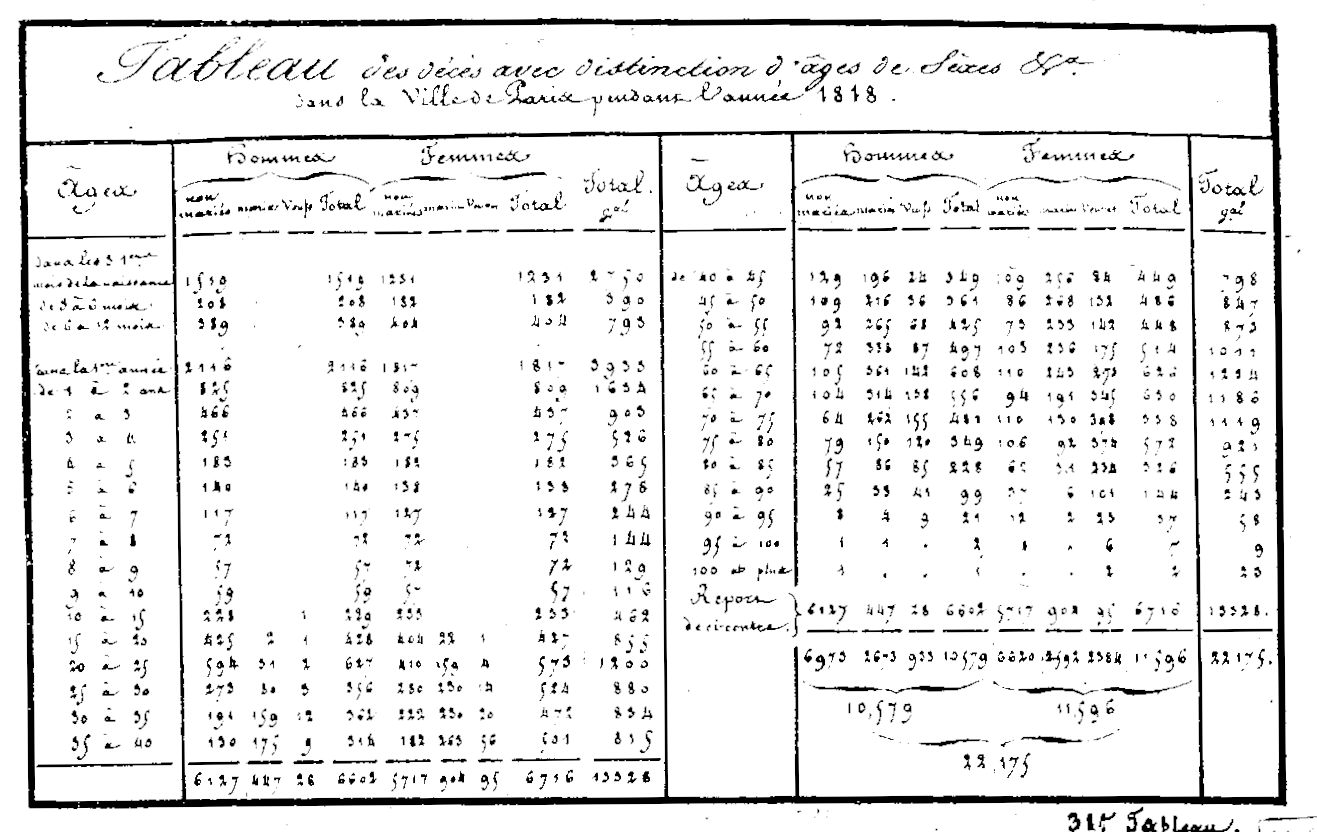 Tableau des décès avec distinction d'âges de Sèxes &a.
dans la Ville de Paris pendant l'année 1818.
Âges
Hommes Femmes Total gal
non mariés mariés Veufs Total non mariés mariées Veuves Total
dans les 3 1ers
mois de la naissance 1519 1519 1231 1231 2750
de 3 à 6 mois 208 208 182 182 390
de 6 à 12 mois 389 389 404 404 793
dans la 1ère année 2116 2116 1817 1817 3933
de 1 à 2 ans 825 825 809 809 1634
2 à 3 466 466 437 437 903
3 à 4 251 251 275 275 526
4 à 5 183 183 182 182 365
5 à 6 140 140 138 138 278
6 à 7 117 117 127 127 244
7 à 8 72 72 72 72 144
8 à 9 57 57 72 72 129
9 à 10 59 59 57 57 116
10 à 15 228 1 229 233 233 462
15 à 20 425 2 1 428 404 22 1 427 855
20 à 25 594 31 2 627 410 159 4 573 1200
25 à 30 273 80 3 356 280 230 14 524 880
30 à 35 191 159 12 362 222 230 20 472 834
35 à 40 130 175 9 314 182 263 56 501 815
6127 447 28 6602 5717 904 95 6716 13328
Âges
Hommes Femmes Total gal
non mariés mariés Veufs Total non mariés mariées Veuves Total
de 40 à 45 129 196 24 349 109 256 84 449 798
45 à 50 109 216 36 361 86 268 132 486 847
50 à 55 92 265 68 425 73 233 142 448 873
55 à 60 72 338 87 497 103 236 175 514 1011
60 à 65 105 361 142 608 110 243 273 626 1234
65 à 70 104 314 138 556 94 191 345 630 1186
70 à 75 64 262 155 481 110 130 398 638 1119
75 à 80 79 150 120 349 106 92 374 572 921
80 à 85 57 86 85 228 234 326 555
85 à 90 25 33 41 99 37 6 101 144 243
90 à 95 8 4 9 21 12 2 23 37 58
95 à 100 1 1 . 2 1 . 6 7 9
100 et plus 1 . . 1 . . 2 2 23
Report
de ci contre. 6127 447 28 6602 5717 904 95 6716 13328.
6973 2673 933 10579 6620 2592 2384 11596 22175.
10,579 11,596
22,175
31e Tableau.